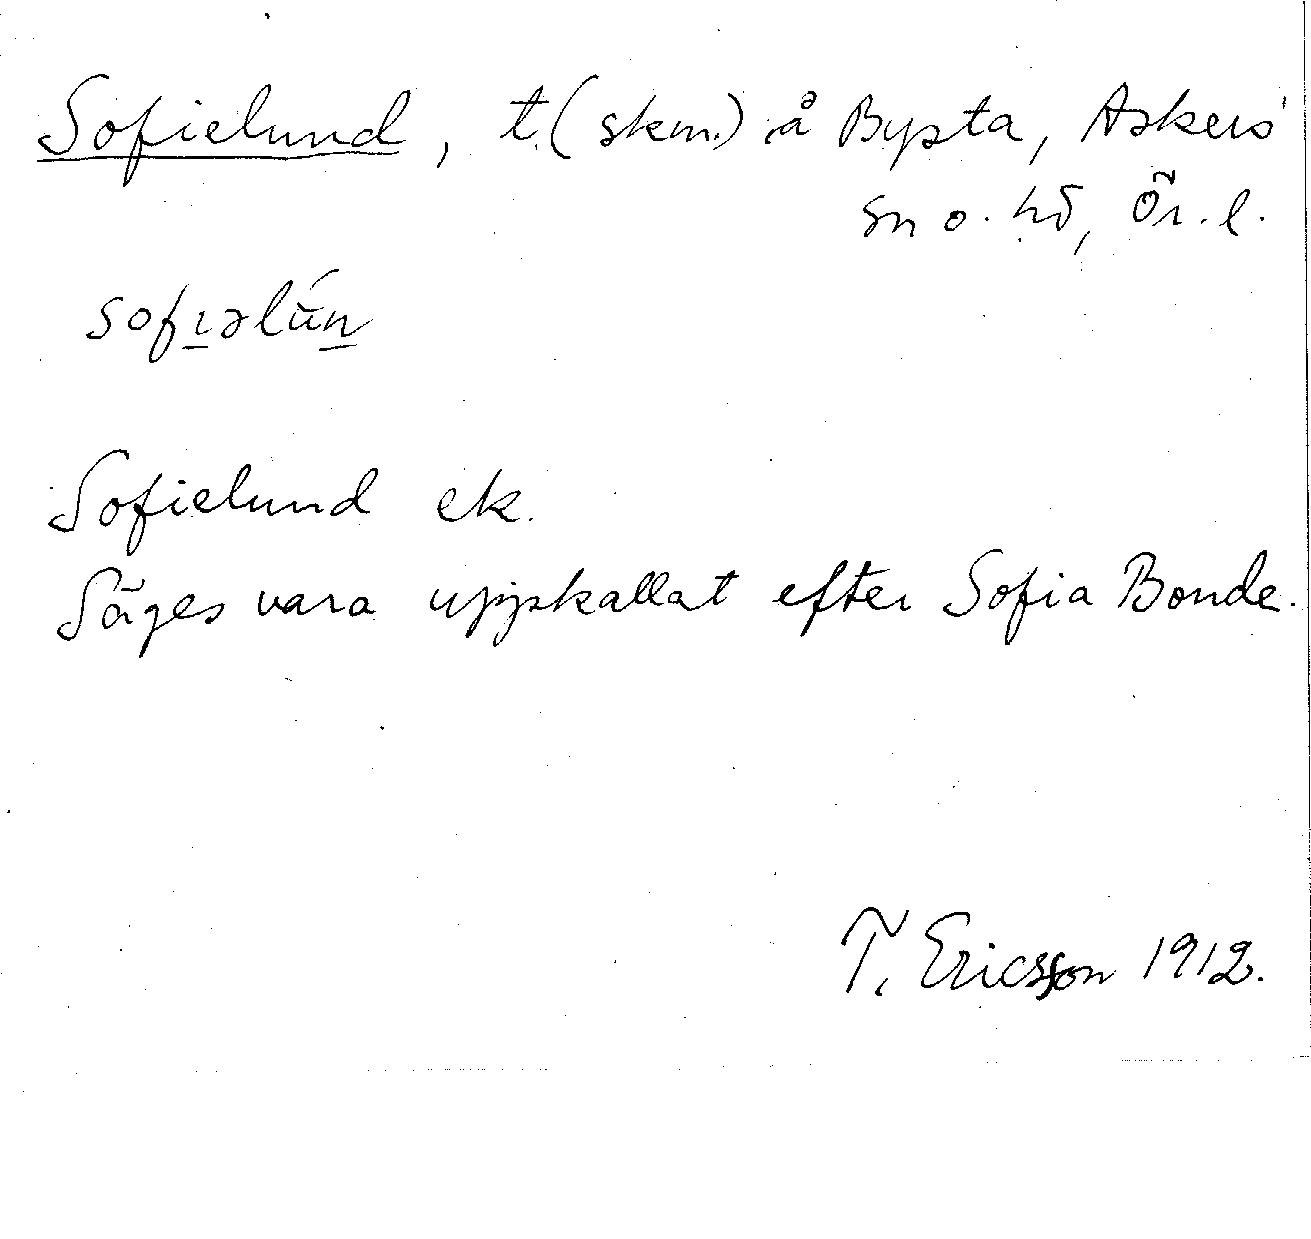 Sofielund, t. (skm.) å Bysta, Askers
sn o. hd, Ör. l.
sofıəlún
Sofielund ek.
Säges vara uppkallat efter Sofia Bonde.
T. Ericsson 1912.